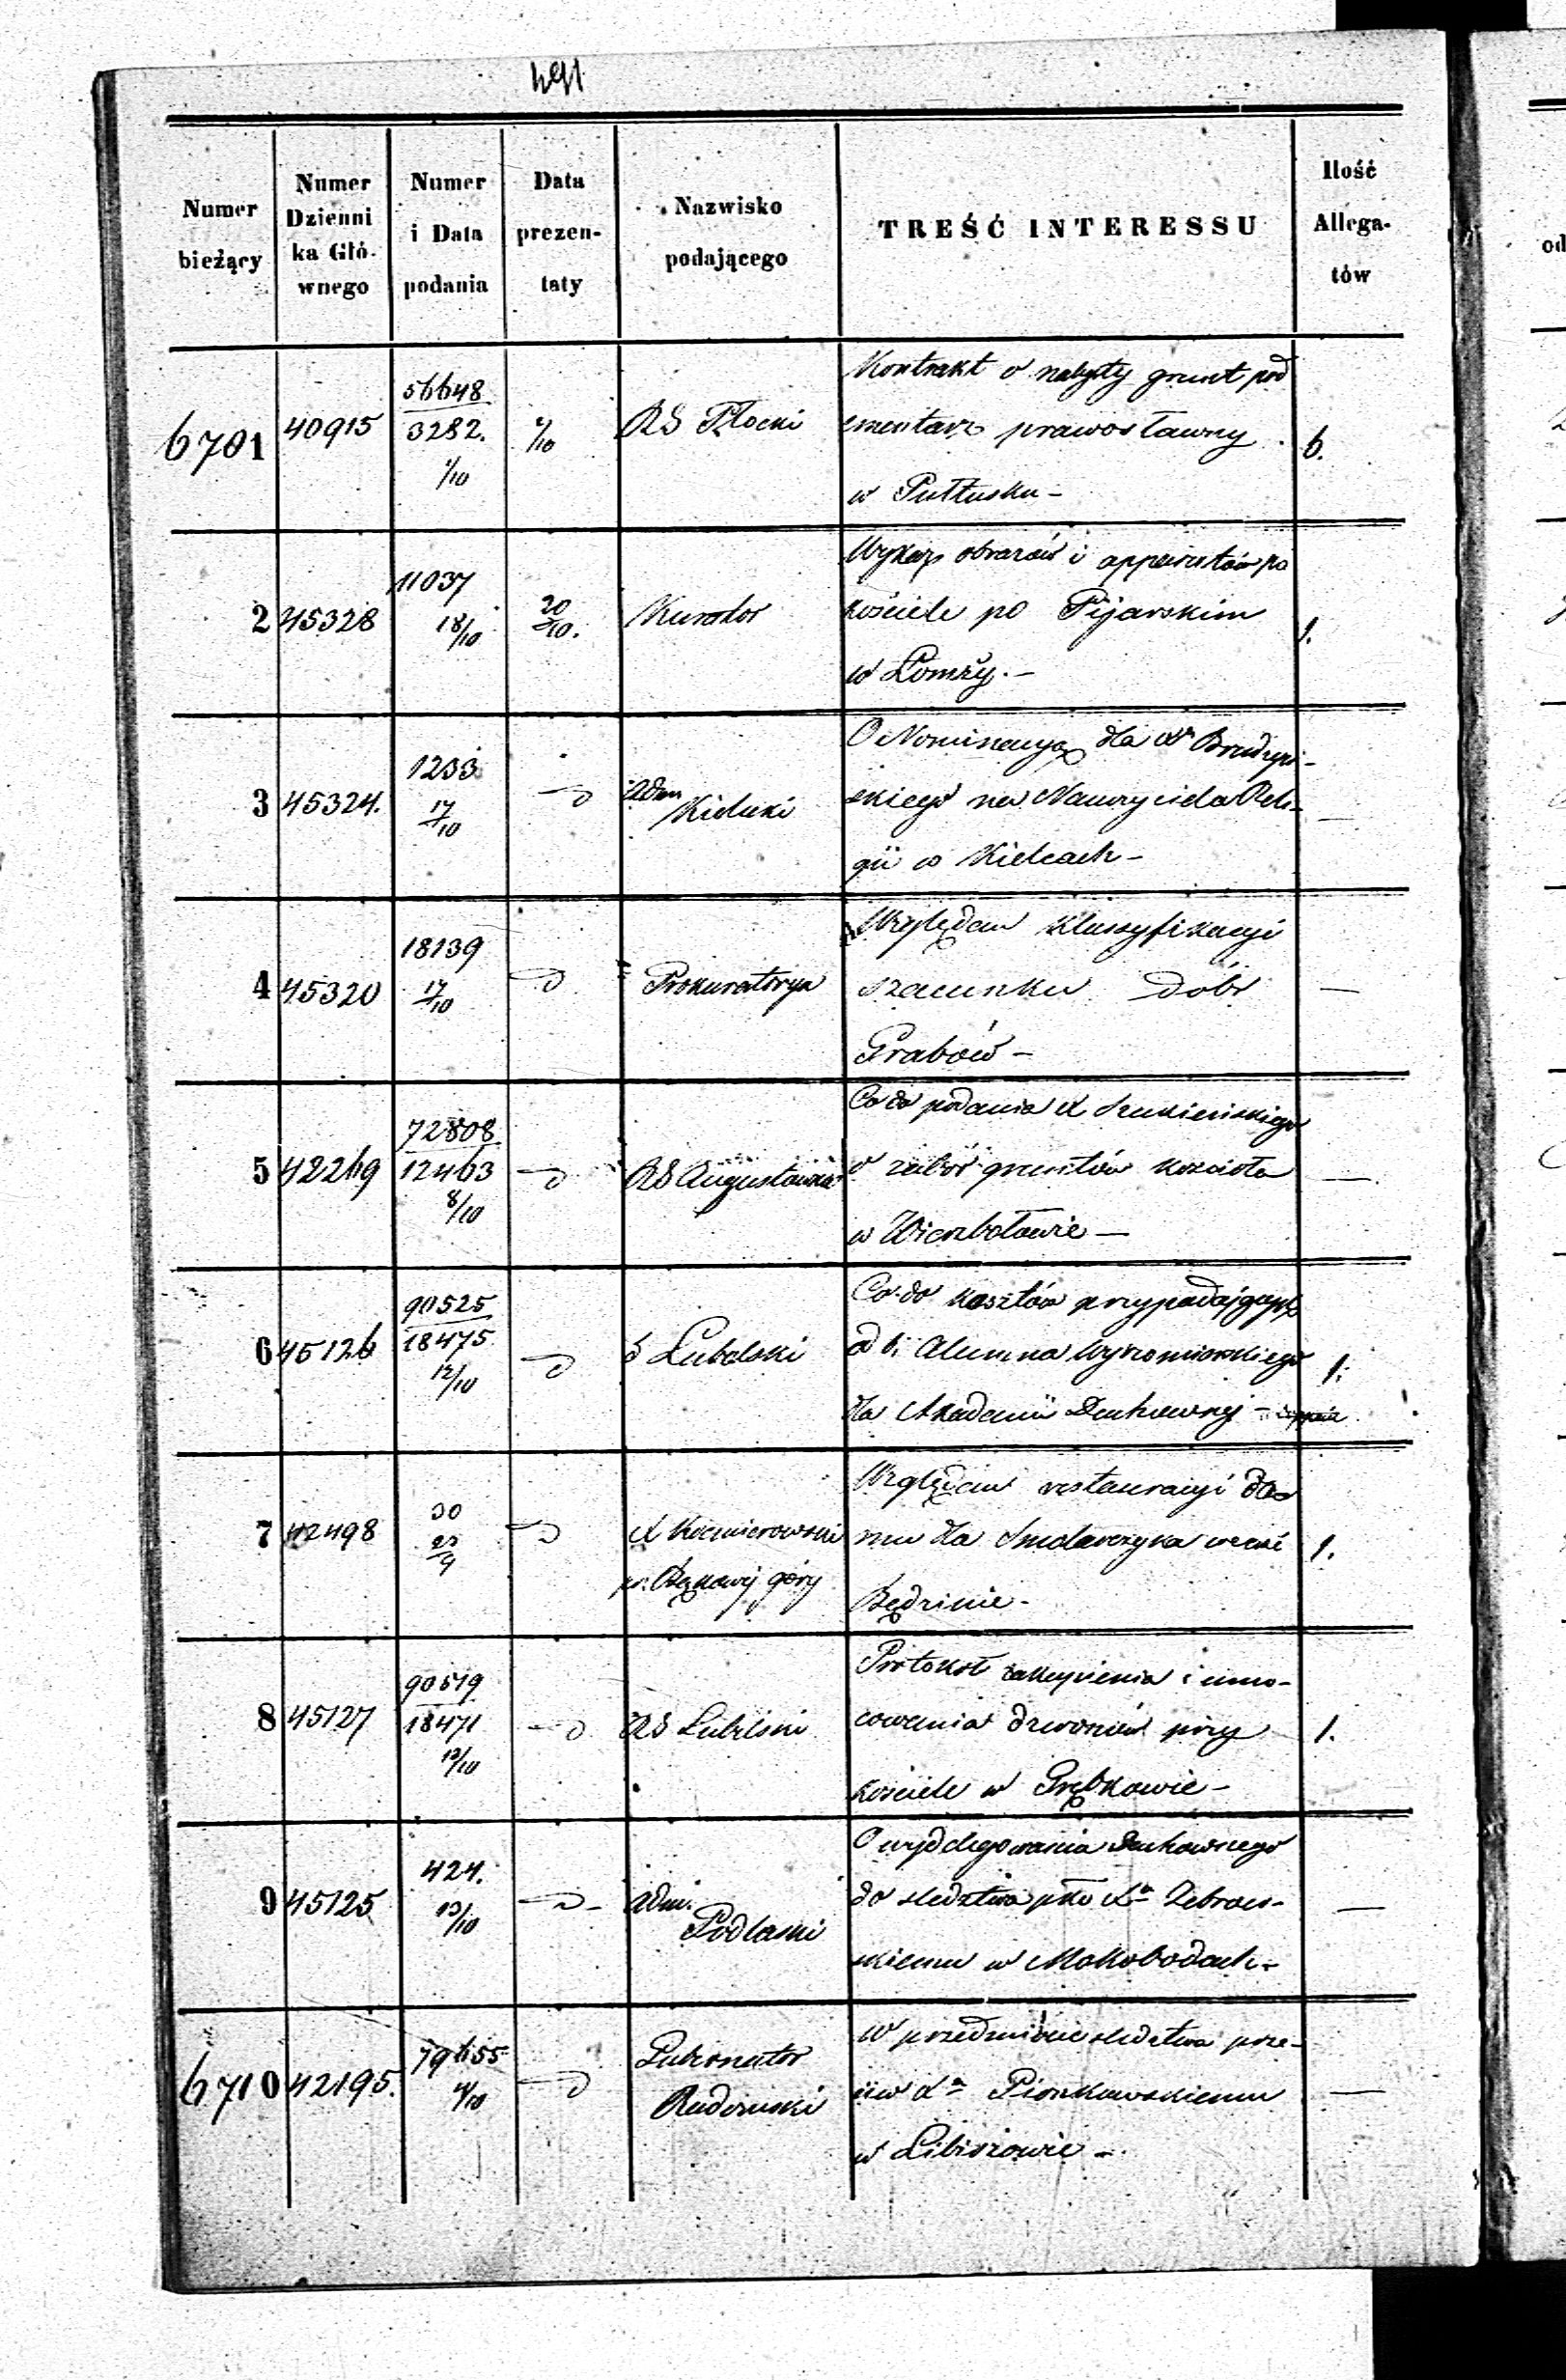 Numer bieżący | Numer Dzienni ka Głó- wnego | Numer i Data podania | Data prezen- taty | Nazwisko podającego | TREŚĆ INTERESSU | Ilość Allega- tów
6701 | 40915 | 56648 3282. 1/10 | 2/10 | RG Płocki | Kontrakt o nabyty grunt pod
cmentarz prawosławny | 6.
w Pułtusku –
2 | 45328 | 11037 18/10 | 20/10. | Kurator | Wykaz obrazów i apparatów po
kościele po Pijarskim | 1.
w Łomży. –
3 | 45324. | 1233 17/10 | Adm Kielecki | O Nominacyą dla
skiego na Nauczyciela Reli- | —
gii w Kielcach –
4 | 45320 | 18139 17/10 | Prokuratorya | Względem klassyfikacyi
szacunku dóbr | —
Grabów –
5 | 42269 | 72808 12463 8/10 | RG Augustowski | Co do podania X
o zabór gruntów kościoła | —
w Wierzbołowie —
6 | 45126 | 90525 18475 12/10 | Lubelski | Co do kosztów przypadających
od 1. Alumna | 1.
dla Akademii Duchownej –
7 | 42498 | 30 23/9 | X Kaźmierowski | Względem restauracyi do-
mu dla Smolarczyka we wsi | 1.
góry | Będzinie –
8 | 45127 | 90519 18471 12/10 | RG Lubelski | Protokół zakupienia i umo-
cowania dzwonów przy | 1.
kościele w Grębkowie –
9 | 45125 | 424. 13/10 | Adm. Podlaski | O wydelegowania Duchownego
do śledztwa pko Xu Zebrow- | —
skiemu w Mokobodach –
6710 | 42195. | 79655 4/10 | Gubernator Radomski | W przedmiocie śledztwa prze-
ciw Xu Pionkowskiemu | —
w Libiszowie –